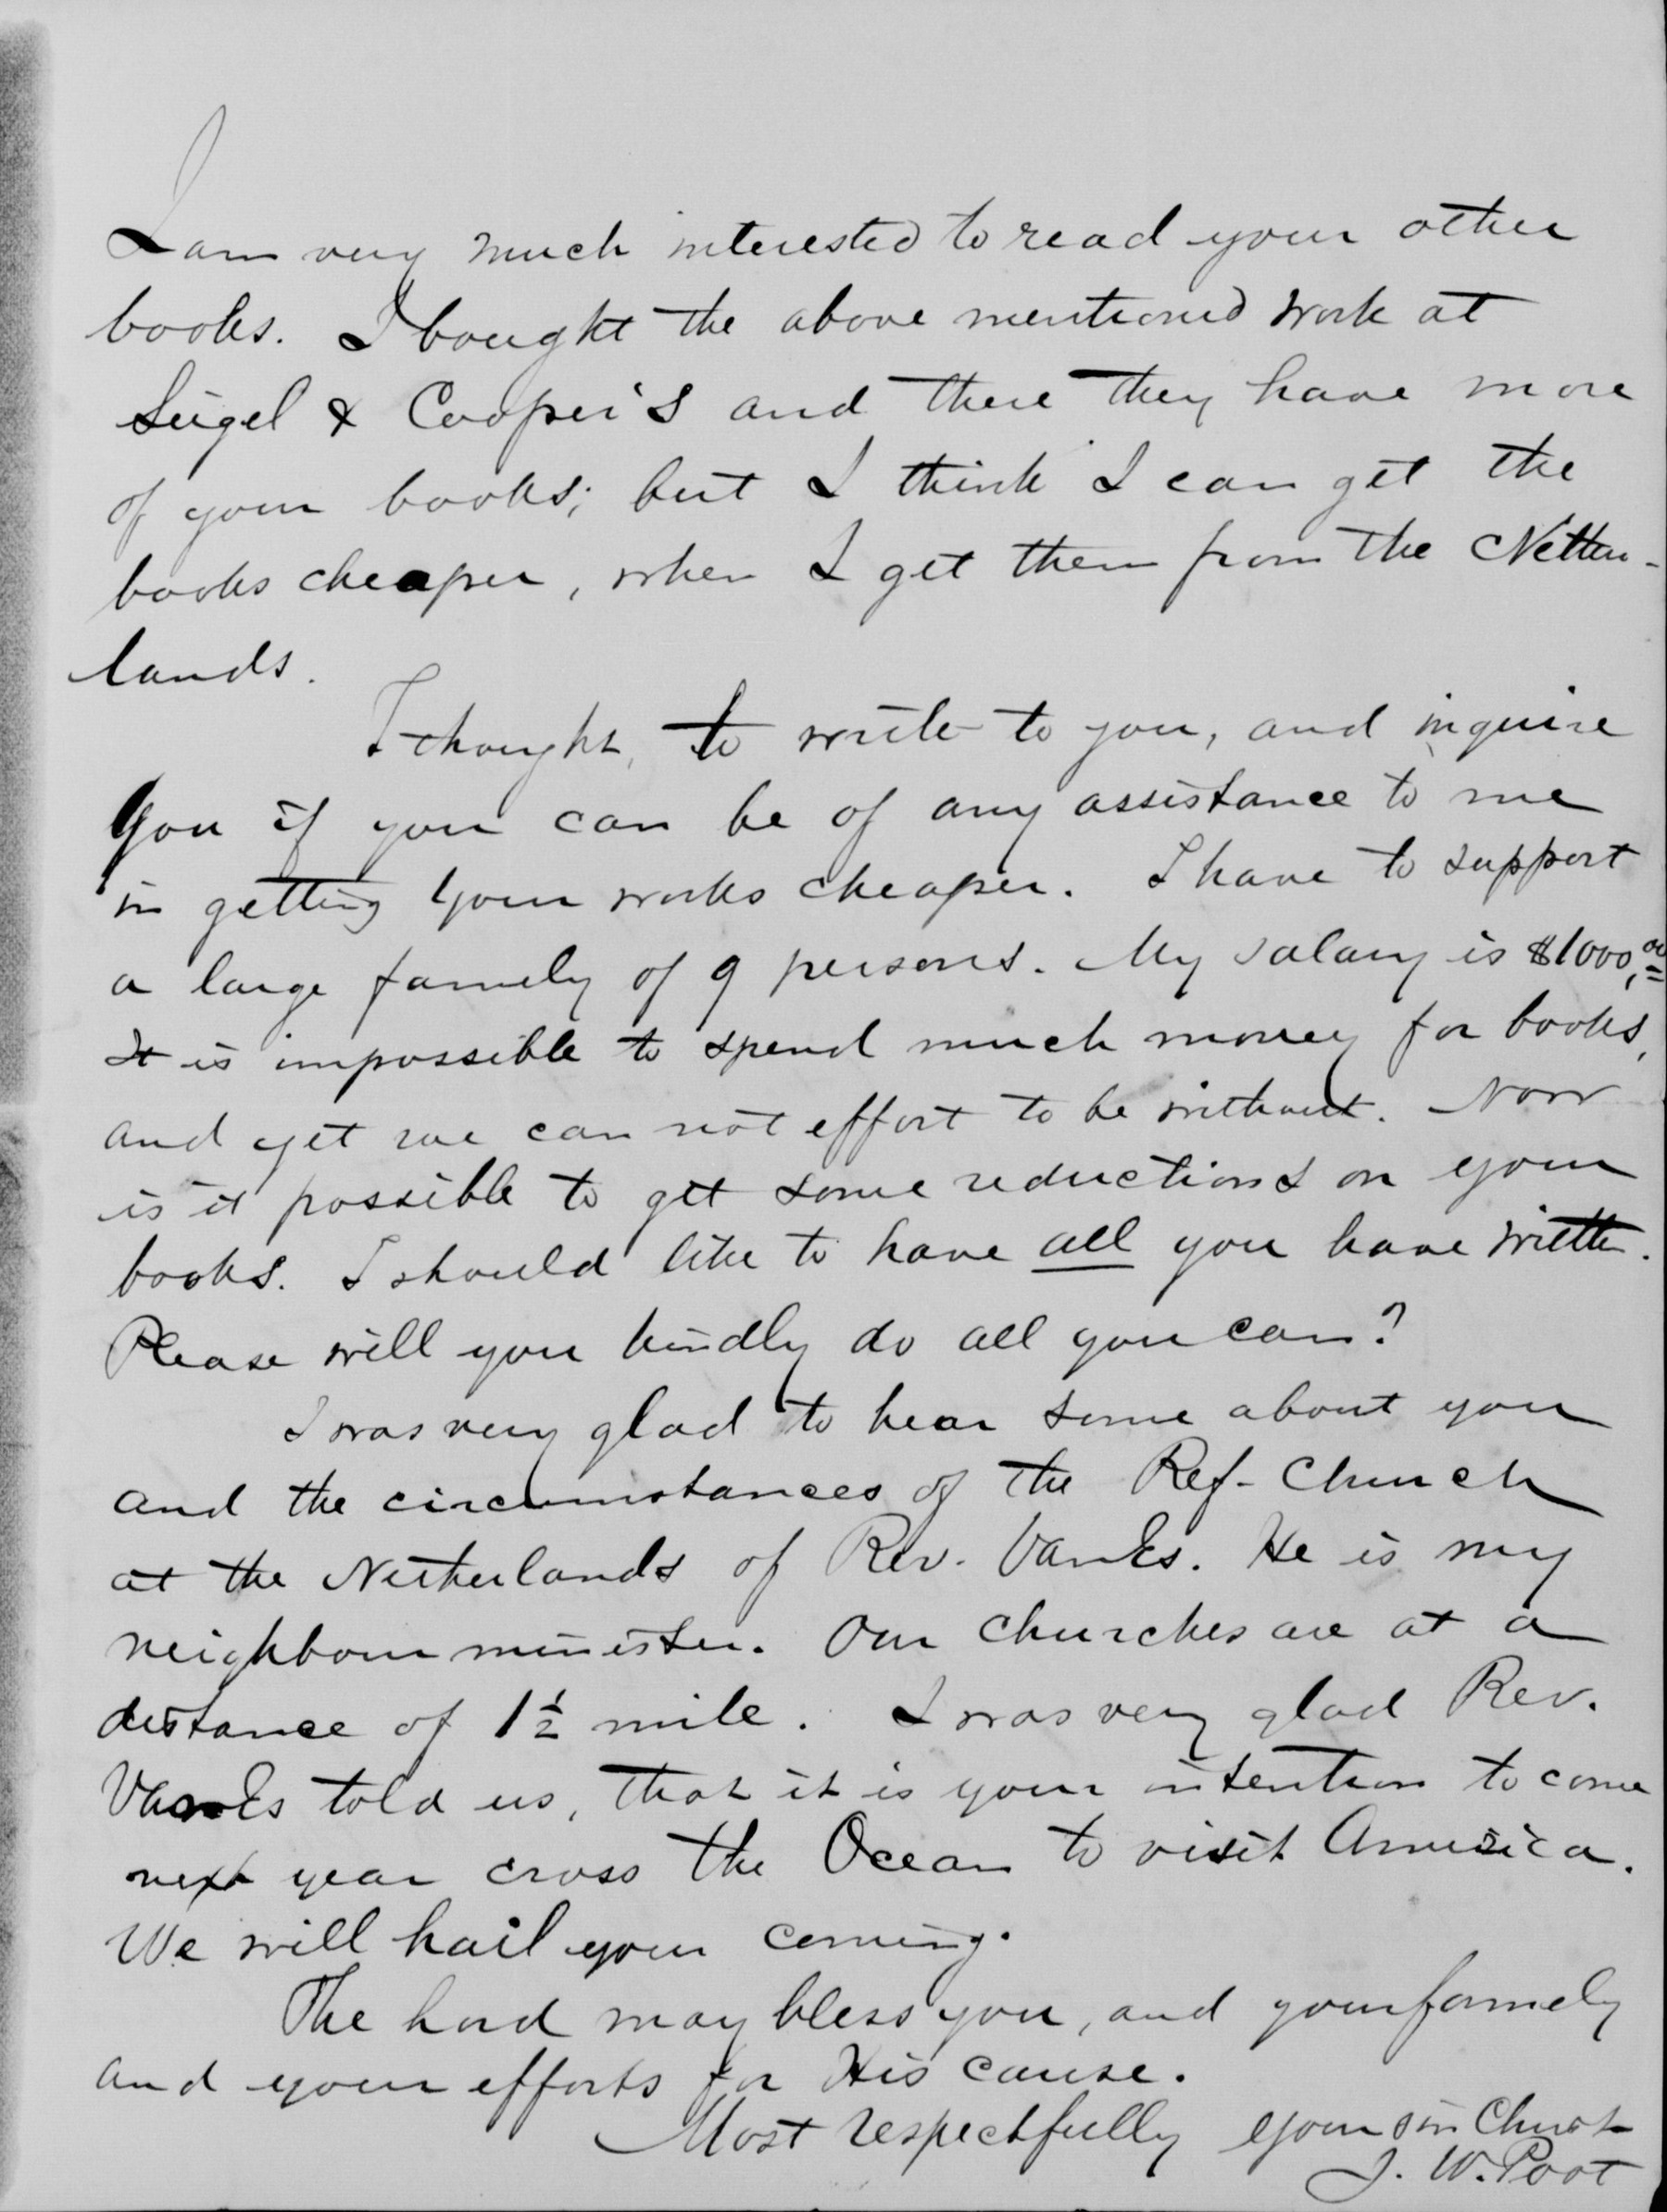 I am very much interested to read your other
books. I bought the above mentioned work at
Seigel & Cooper's and there they have more
of your books; but I think I can get the
books cheaper, when I get them from the Nether-
lands.
I thought, to write to you, and inquire
you if you can be of any assistance to me
in getting your works cheaper. I have to support
a large family of 9 persons. My salary is $1000,00
It is impossible to spend much money for books,
and yet we can not effort to be without. Now
is it possible to get some reductions on your
books. I should like to have all you have written.
Please will you kindly do all you can?
I was very glad to hear some about you
and the circumstances of the Ref- Church
at the Netherlands of Rev. VanEs. He is my
neighbour minister. Our churches are at a
distance of 1½ mile. I was very glad Rev.
VanEs told us, that it is your intention to come
next year cross the Ocean to visit America.
We will hail your coming.
The Lord may bless you, and your family
and your efforts for His cause.
Most respectfully yours in Christ
J. W. Poot